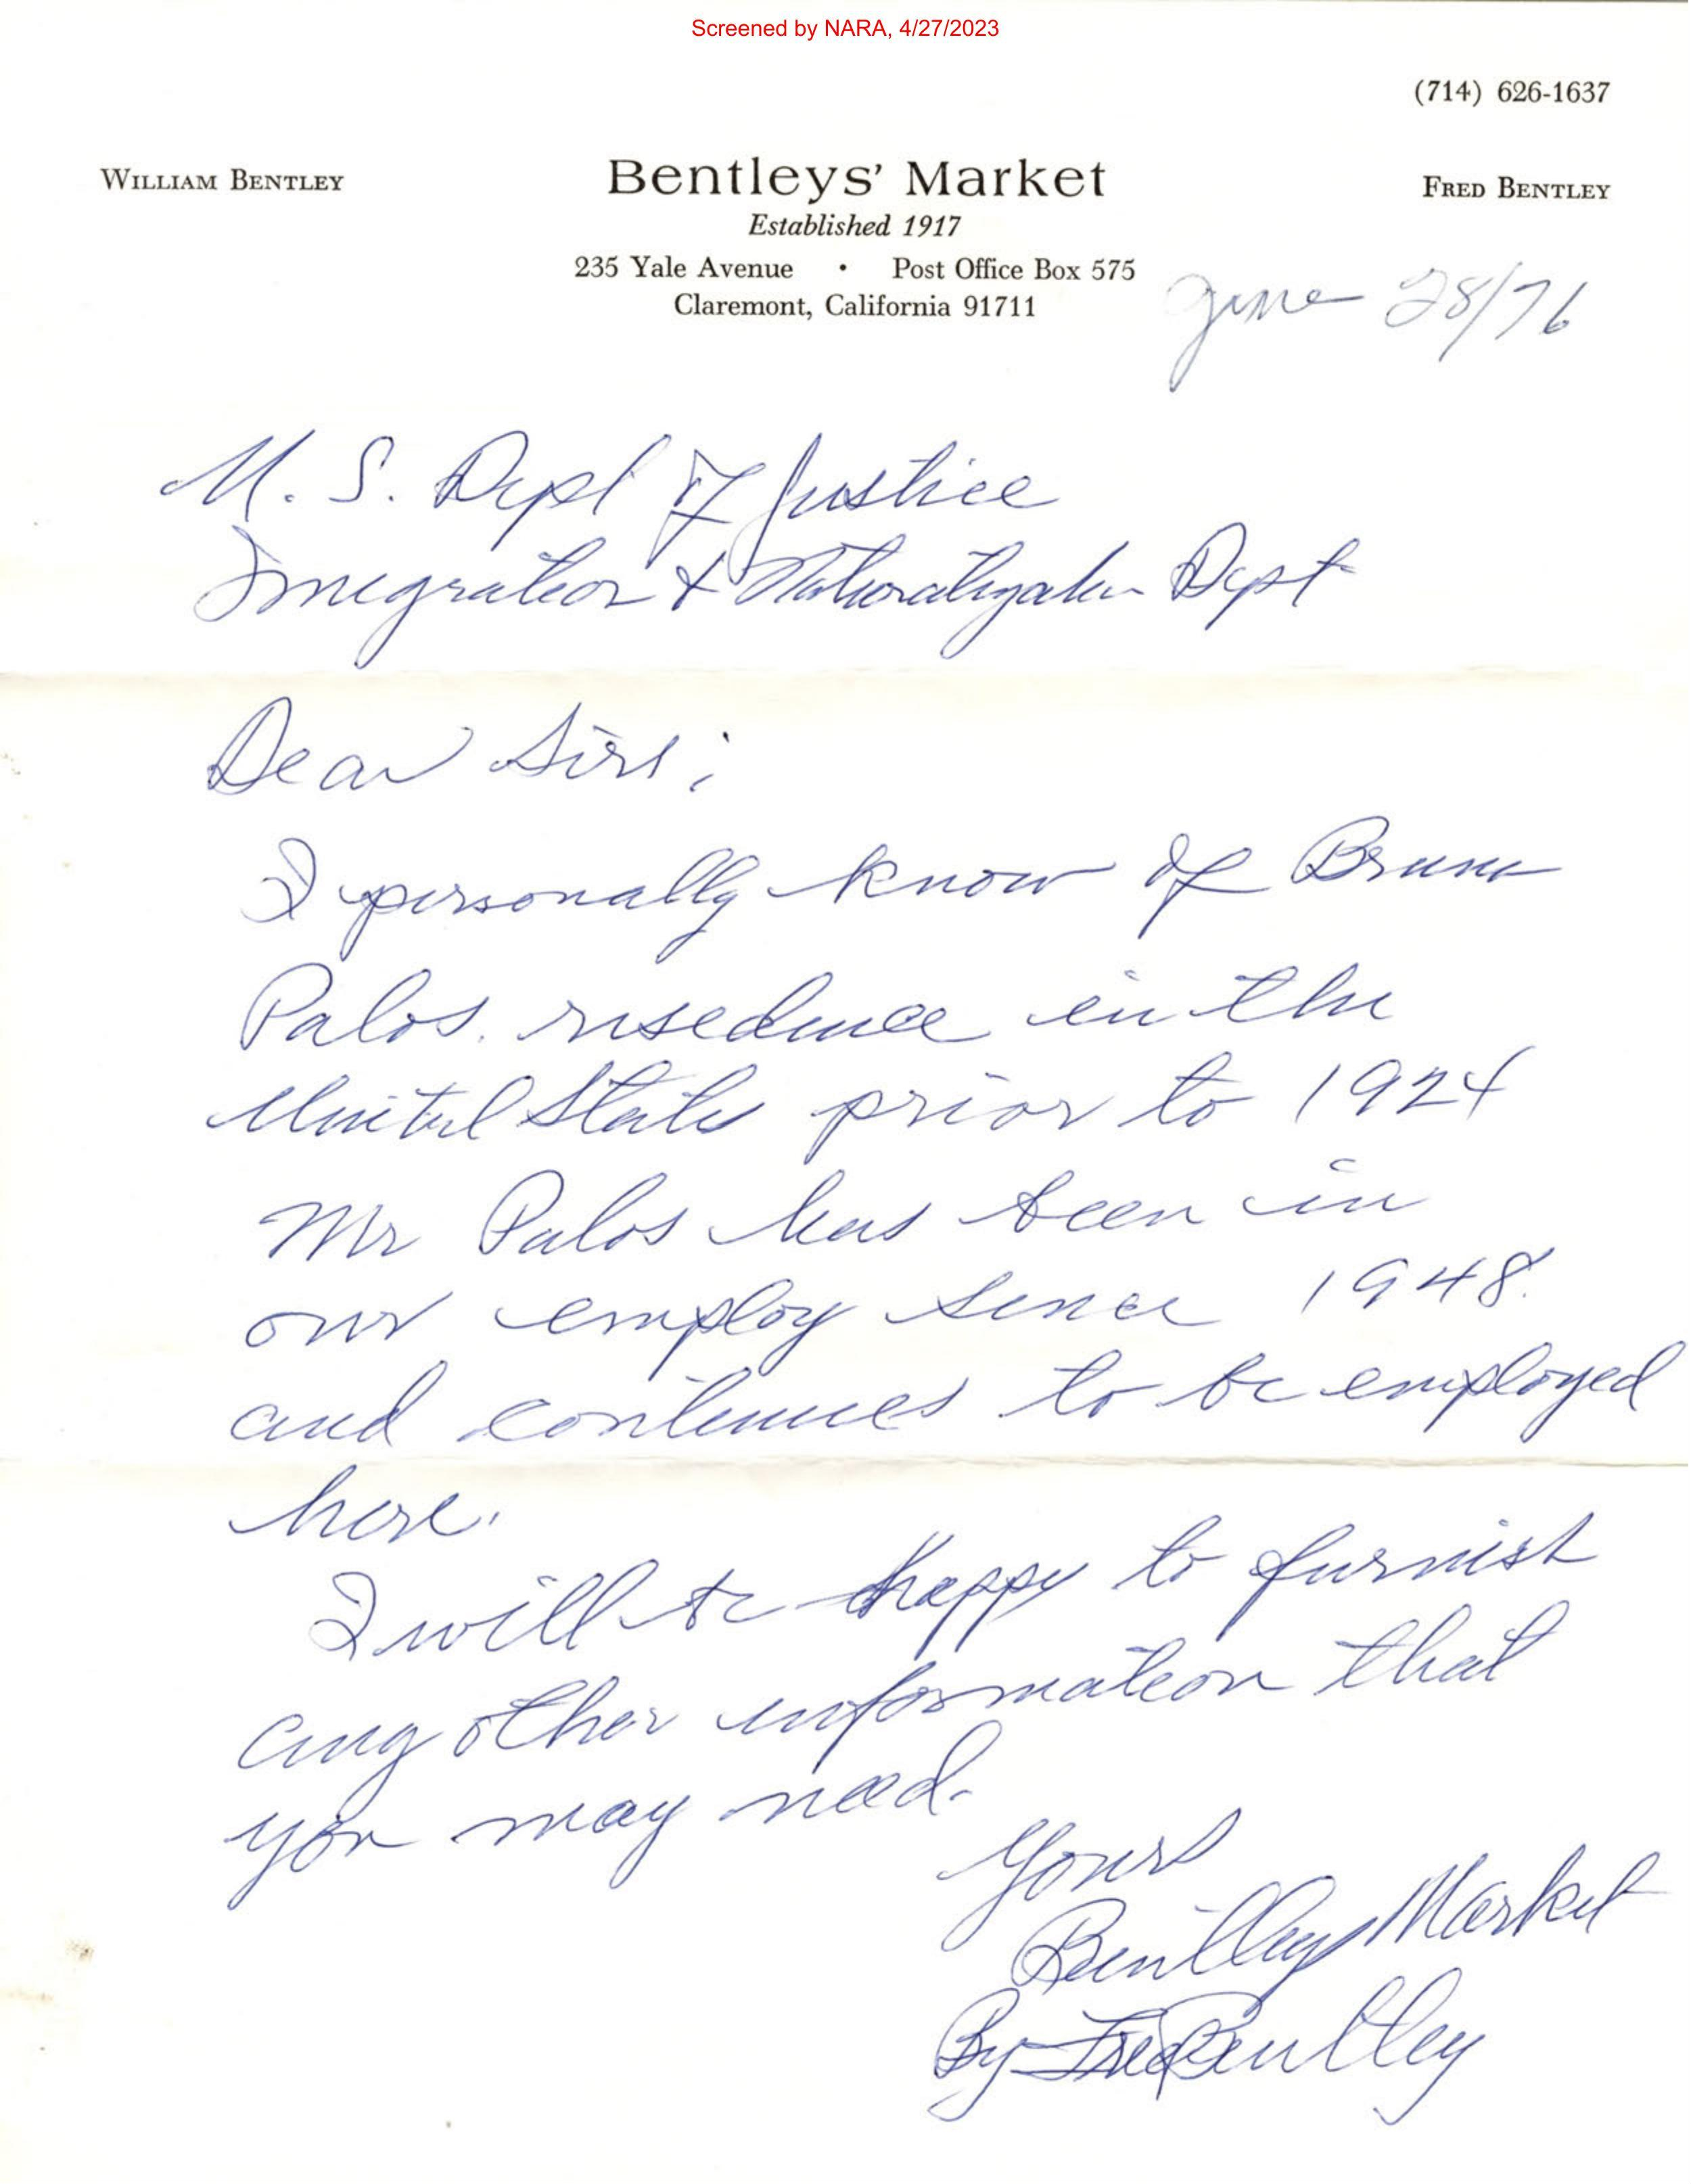 Screened by NARA, 4/27/2023
(714) 626-1637
WILLIAM BENTLEY
Bentleys' Market
FRED BENTLEY
Established 1917
235 Yale Avenue • Post Office Box 575
Claremont, California 91711
June 28/76
U. S. Dept of Justice
Imegration & Naturalization Dept
Dear Sirs;
I personally know of Bruno
Palos. resedence in the
United States prior to 1924
Mr Palos has been in
our employ since 1948.
and continues to be employed
here.
I will be happy to furnish
any other information that
you may need.
Yours
Bentleys Market
By Fred Bentley